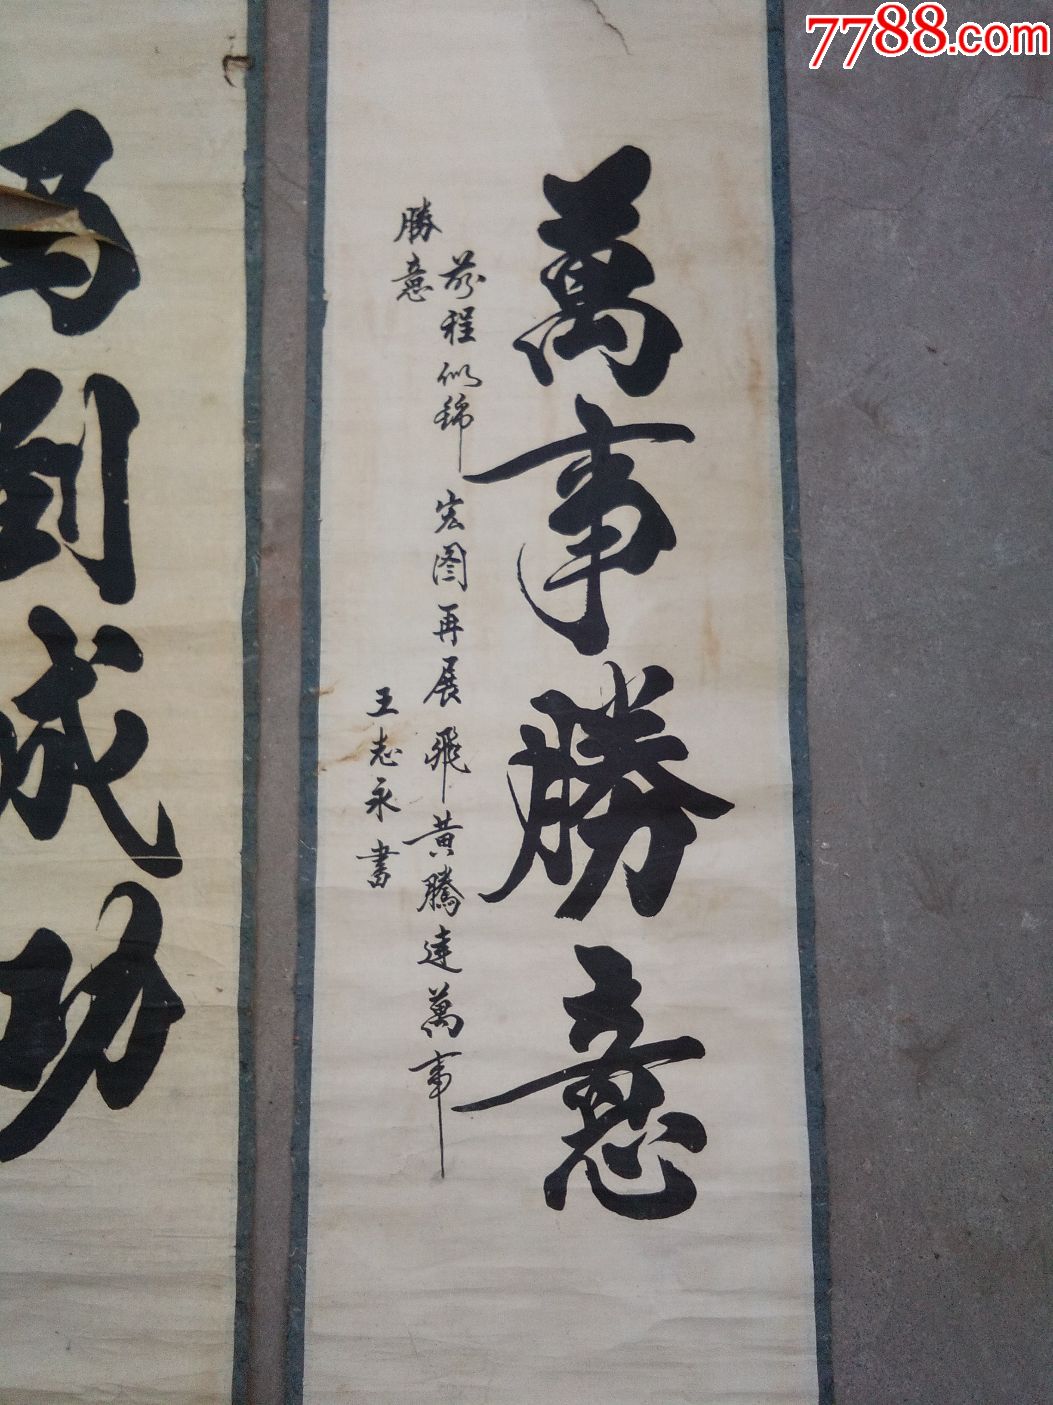 7788.com
萬事勝意
前程似錦宏图再展飛黃騰達萬事
勝意
王志永書
马到成功